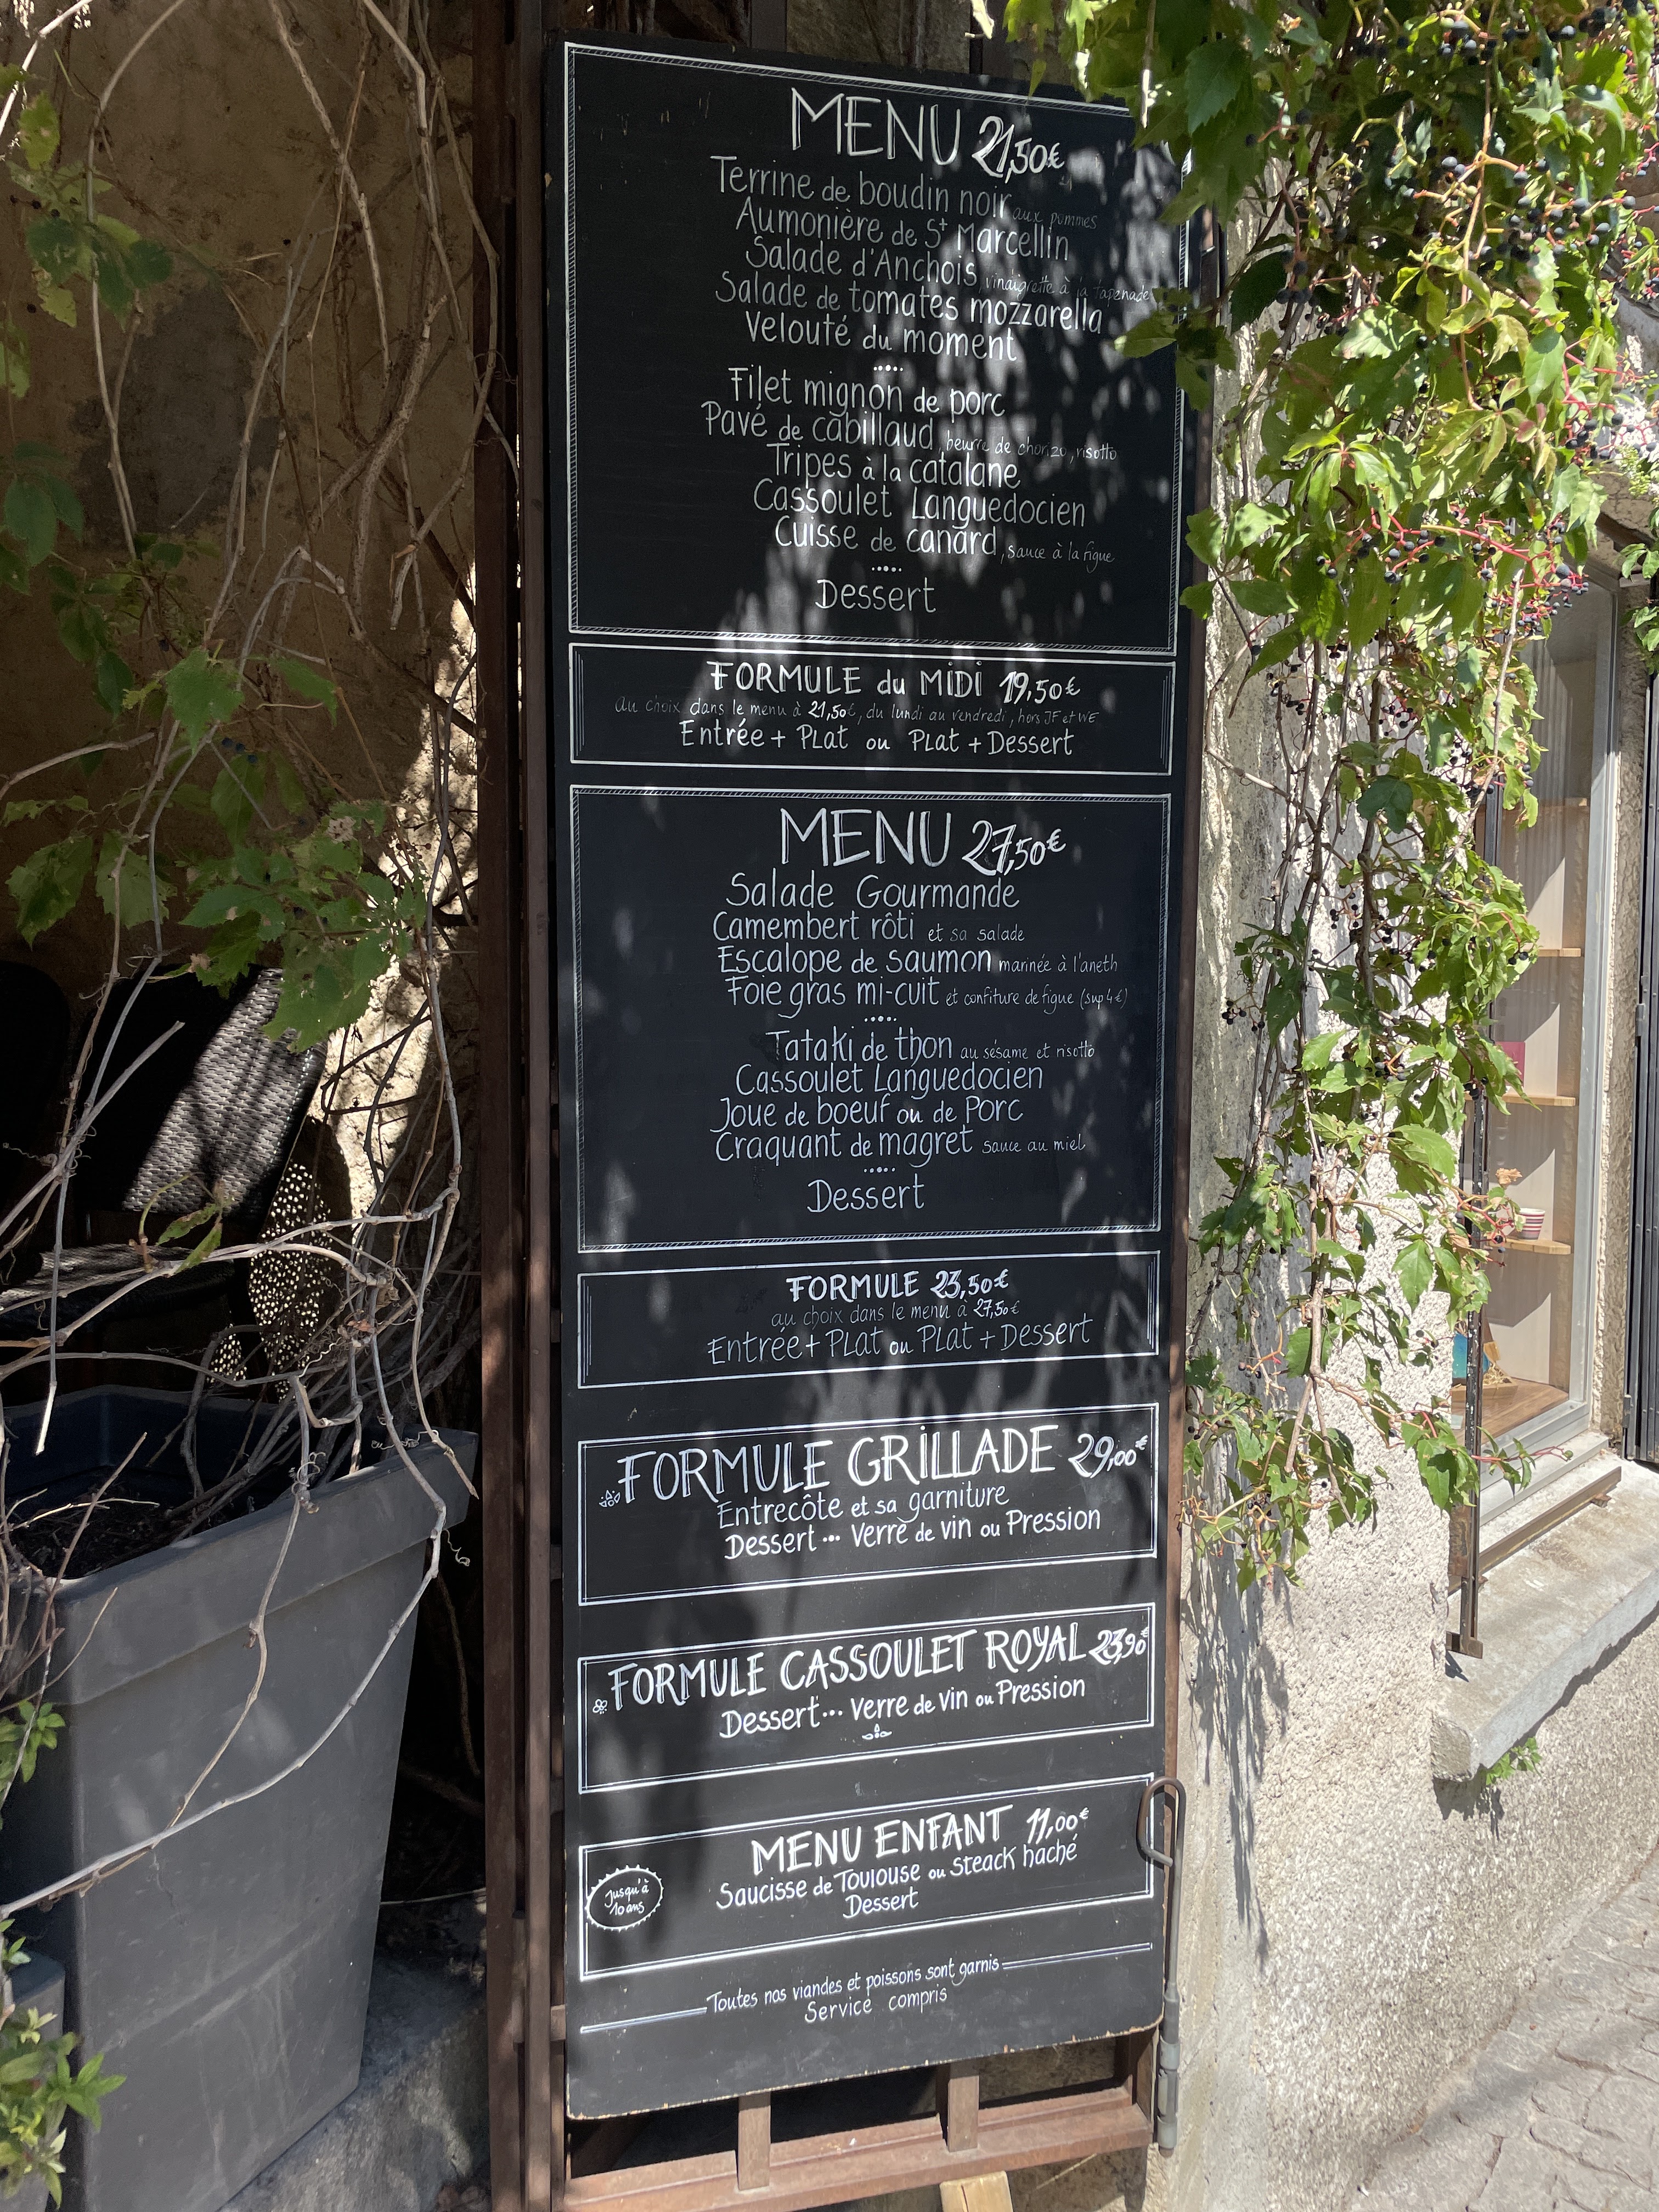 MENU 21,50€
Terrine de boudin noir aux pommes
Aumonière de St Marcellin
Salade d'Anchois, vinaigrette à la tapenade
Salade de tomates mozzarella
Velouté du moment
Filet mignon de porc
Pavé de cabillaud, beurre de chorizo, risotto
Tripes à la catalane
Cassoulet Languedocien
Cuisse de canard, sauce à la figue
Dessert
FORMULE du MIDI 19,50€
au choix dans le menu à 21,50€, du lundi au vendredi, hors JF et WE
Entrée + PLat ou PLat + Dessert
MENU 27,50€
Salade Gourmande
Camembert rôti et sa salade
Escalope de saumon marinée à l'aneth
Foie gras mi-cuit et confiture de figue (sup 4€)
Tataki de thon au sésame et risotto
Cassoulet Languedocien
Joue de boeuf ou de Porc
Craquant de magret sauce au miel
Dessert
FORMULE 23,50€
au choix dans le menu à 27,50€
Entrée + PLat ou PLat + Dessert
FORMULE GRILLADE 29,00€
Entrecôte et sa garniture
Dessert ... Verre de vin ou Pression
FORMULE CASSOULET ROYAL 23,90€
Dessert ... Verre de vin ou Pression
MENU ENFANT 11,00€
Saucisse de Toulouse ou Steack haché
Dessert
Jusqu'à
10 ans
Toutes nos viandes et poissons sont garnis
Service compris